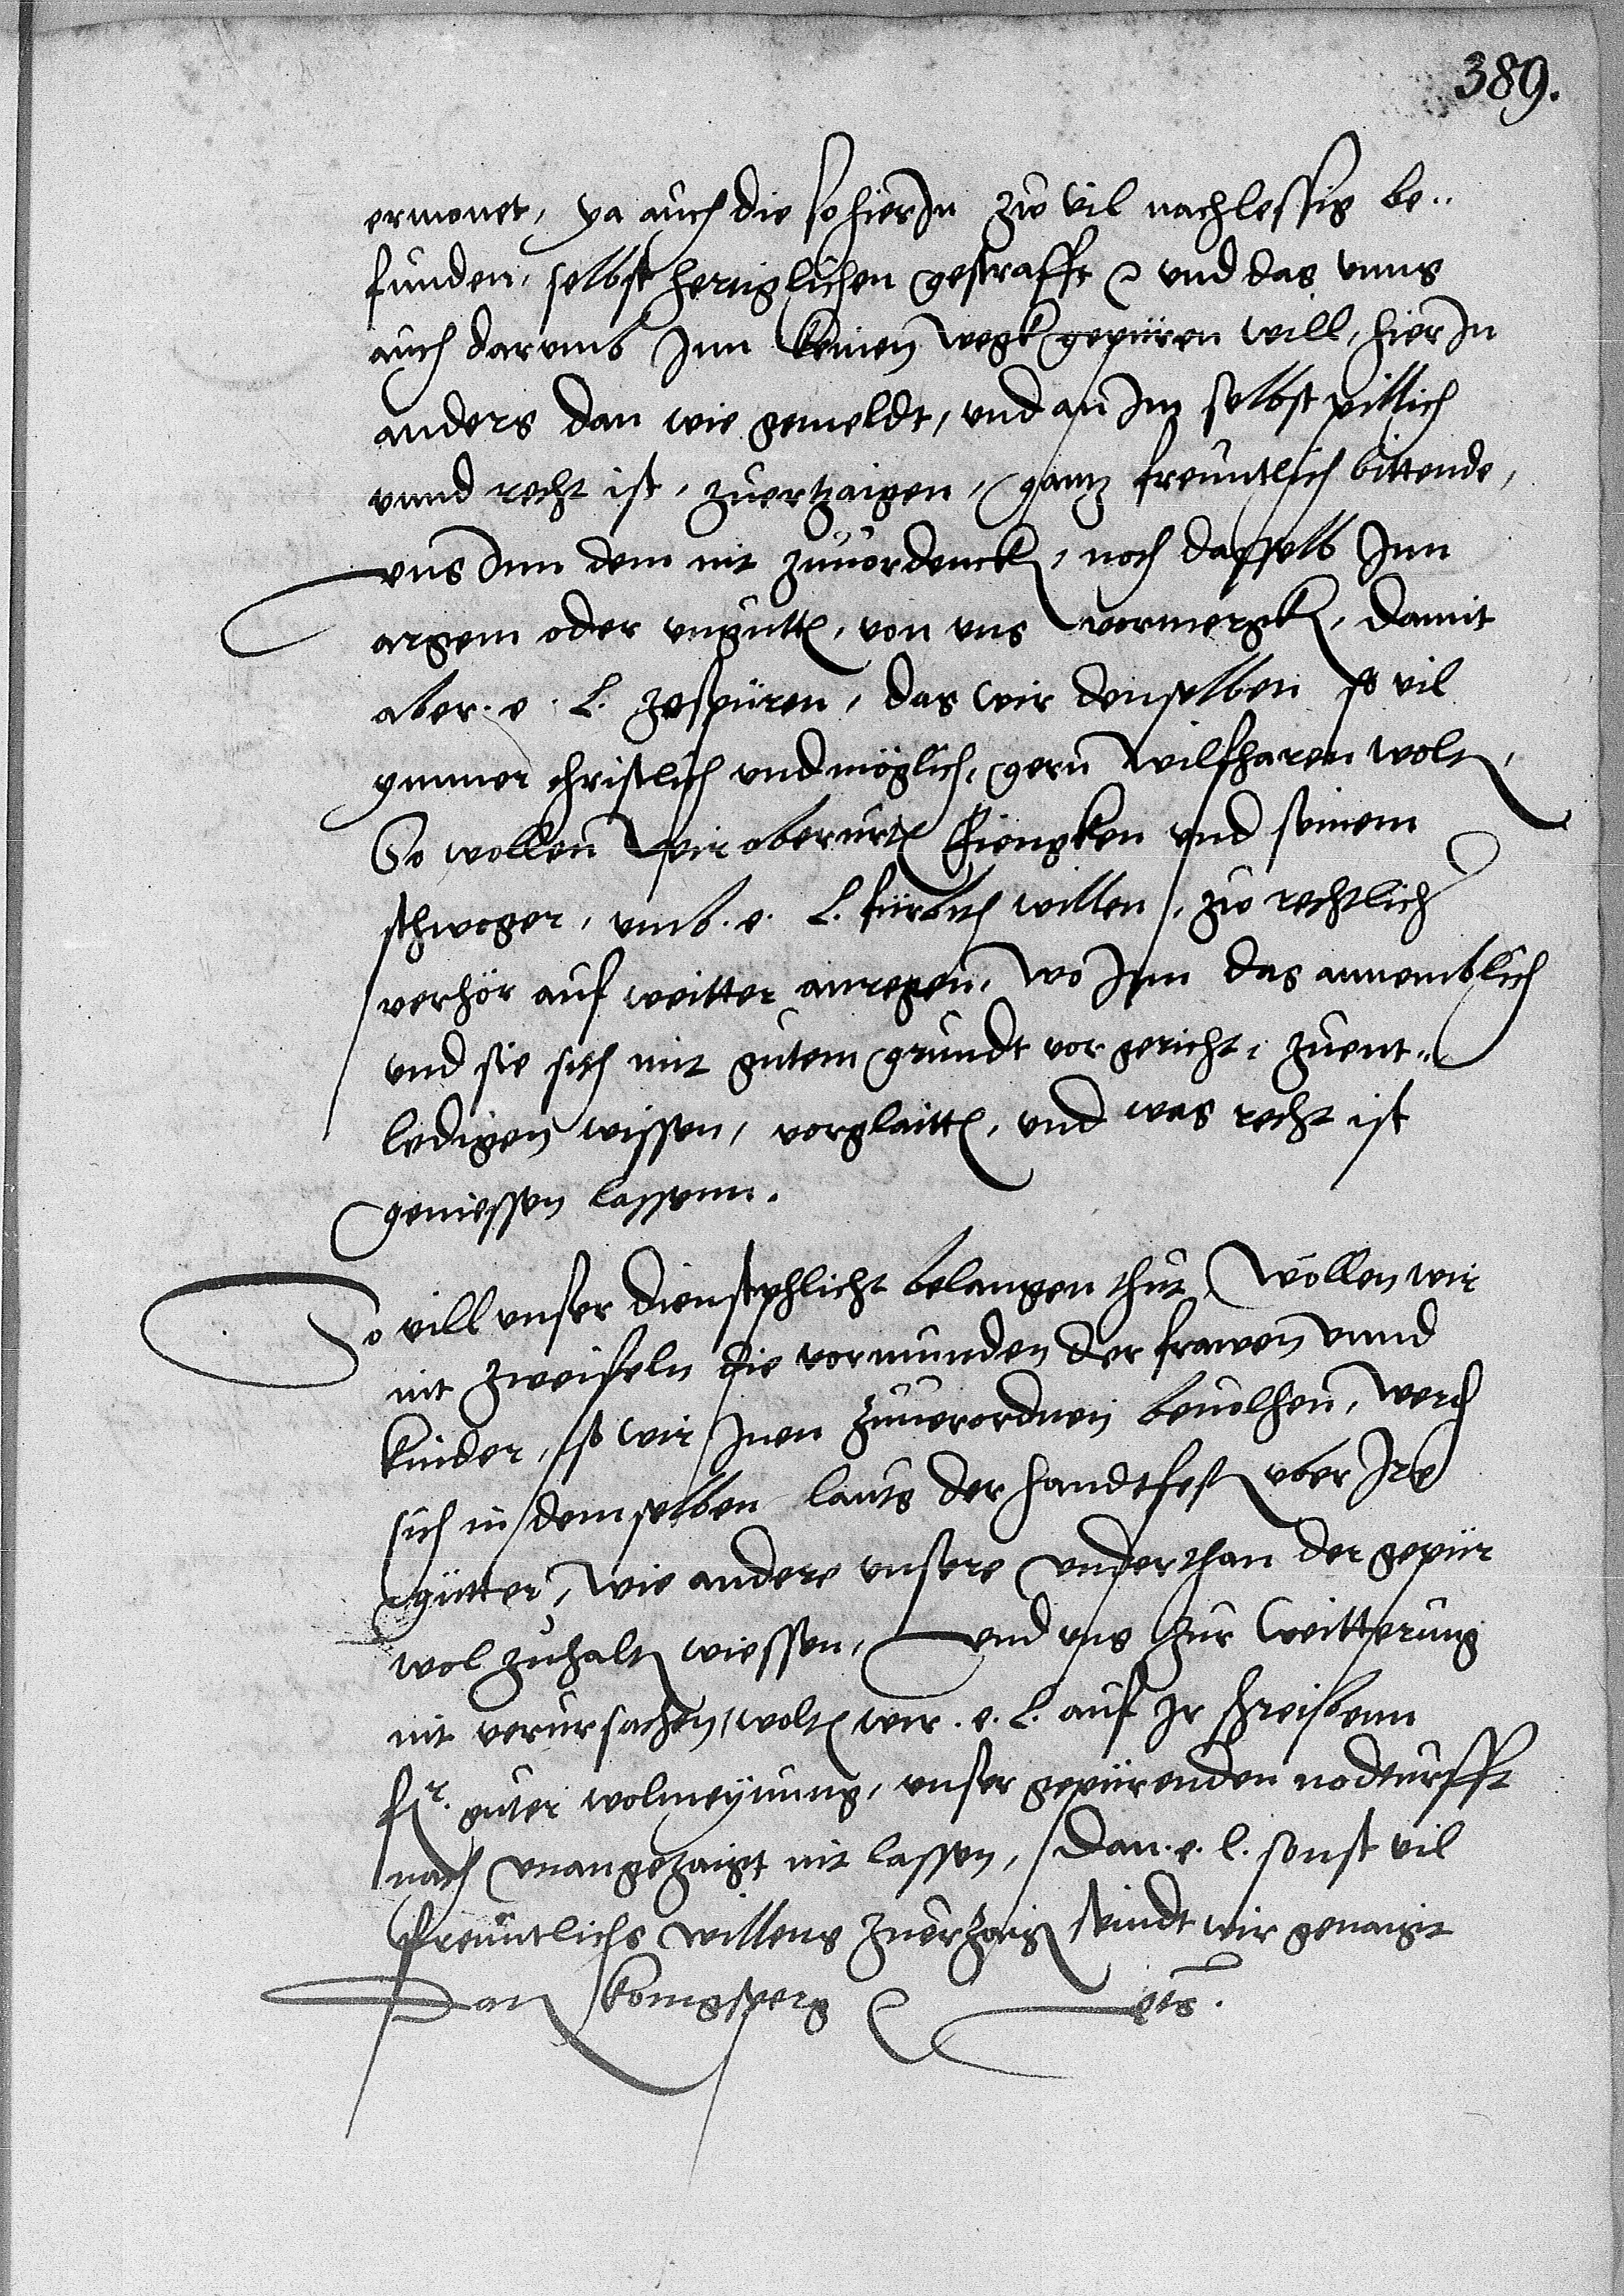 389.
ermanet, ya auch die so hierJn zw vil nachlessig be..
funden, selbst hertiglichen gestrafft ꝛc und das unns
auch darumb Jnn keinen wegk gepüren will, hierJn
anders dan wie gemeldt, und an Jm selbst pillich
unnd recht ist, zuertzaigen, gantz freuntlich bittende,
uns Jnn dem nit zuuordencken, noch dasselb Jnn
argem oder ungutten, von uns vormergken, damit
aber. e. L. zespüren, das wir denselben so vil
ymmer christlich und möglich, gern wilfharen wolten,
So wollen wir oberurten und seinem
schwoger, umb. e. L. fürbith willen, zw rechtlicher
verhör auf weitter anregen, wo Jnn das annemblich
und sie sich mit gutem grundt vor gericht, zuent-
ledigen wissen, vorglaitten, und was recht ist
geniessen lassenn.
So vill unser dienstpflicht belangen thut, wöllen wir
nit zweifeln die vormunden der frawen unnd
kinder, so wir Jnen zuuerordnen beuolhen, werden
sich in demselben lauts der handtfesten uber Jre
gütter, wie andere unsere underthan der gepür
wol zuhalten wiessen, und uns zur weitterung
nit verursachen, wolten wir. e. L. auf Jr schreibenn
guter wolmeynung, unser gepürenden nodturfft
nach unangezaigt nit lassen, dan. e. l. sonst vil
freuntlichs willens zuerzaigen seindt wir genaigt
Dat Konigsperg ꝛc uts.